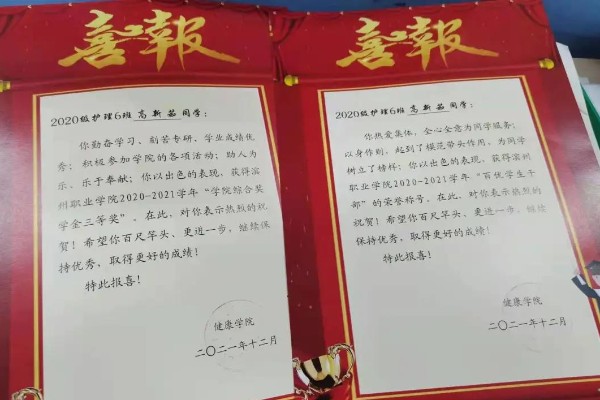 喜報
2020级护理6班 高新茹 同学：
你勤奋学习，刻苦专研，学业成绩优
秀；积极参加学院的各项活动；助人为
乐，乐于奉献；你以出色的表现，获得滨
州职业学院2020-2021学年“学院综合奖
学金三等奖”。在此，对你表示热烈的祝
贺！希望你百尺竿头、更进一步，继续保
持优秀，取得更好的成绩！
特此报喜！
健康学院
二〇二一年十二月
喜報
2020级护理6班 高新茹 同学：
你热爱集体，全心全意为同学服务；
以身作则，起到了模范带头作用，为同学
树立了榜样；你以出色的表现，获得滨州
职业学院2020-2021学年“百优学生干
部”的荣誉称号。在此，对你表示热烈的
祝贺！希望你百尺竿头、更进一步，继续
保持优秀，取得更好的成绩！
特此报喜！
健康学院
二〇二一年十二月